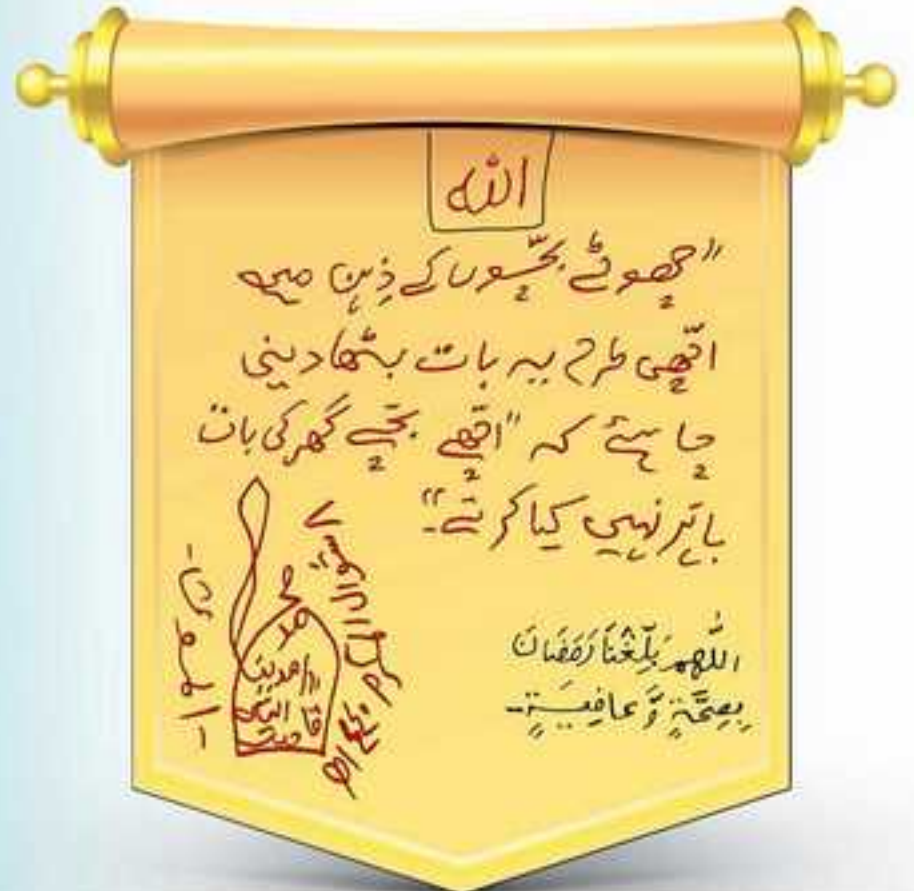 الله
"چھوٹے بچّوں کے ذِہن میں
اچّھی طرح یہ بات بٹھا دینی
چاہئے کہ "اچّھے بچّے گھر کی بات
باہَر نہیں کیا کرتے"۔
اللّٰھم بَلِّغْنَا رَمَضَانَ
بِصِحَّۃٍ وَّعَافِیَۃٍ۔
محمد